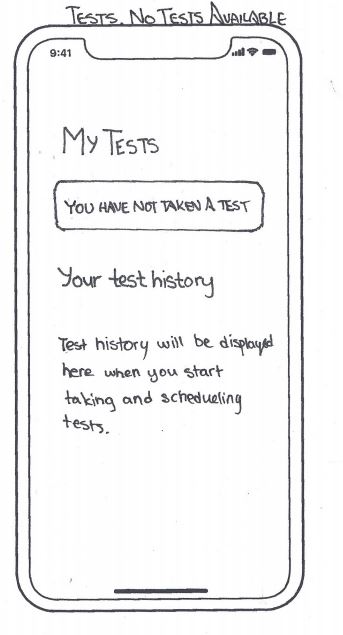 TESTS. NO TESTS AVAILABLE
9:41
MY TESTS
YOU HAVE NOT TAKEN A TEST
Your test history
Test history will be displayed
here when you start
taking and schedueling
tests.